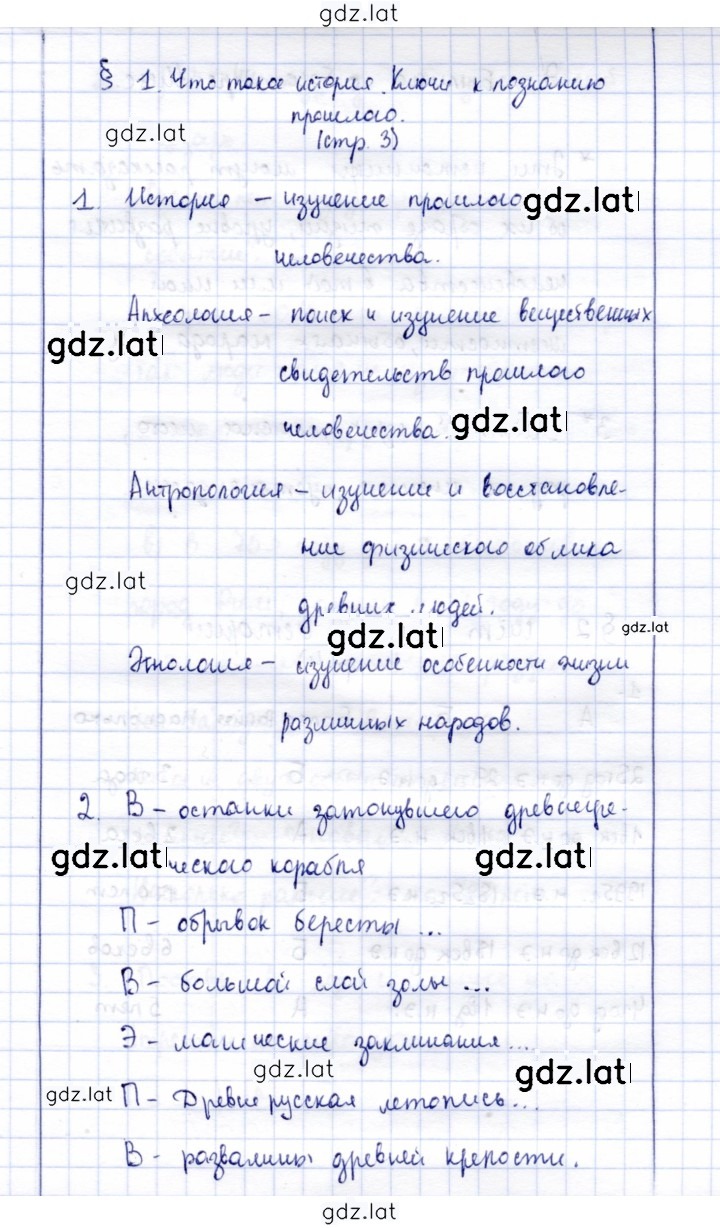 gdz.lat
§ 1. Что такое история. Ключи к познанию
прошлого.
gdz.lat
(стр. 3)
1. История – изучение прошлого gdz.lat
человечества.
Археология – поиск и изучение вещественных
gdz.lat
свидетельств прошлого
человечества. gdz.lat
Антропология – изучение и восстановле-
ние физического облика
gdz.lat
древних людей.
gdz.lat gdz.lat
Этнология – изучение особенности жизни
различных народов.
2. В – останки затонувшего древнегре-
gdz.lat ческого корабля gdz.lat
П – обрывок бересты ...
В – большой слой золы ...
Э – магические заклинания ....
gdz.lat gdz.lat
gdz.lat П – Древнерусская летопись...
В – развалины древней крепости.
gdz.lat